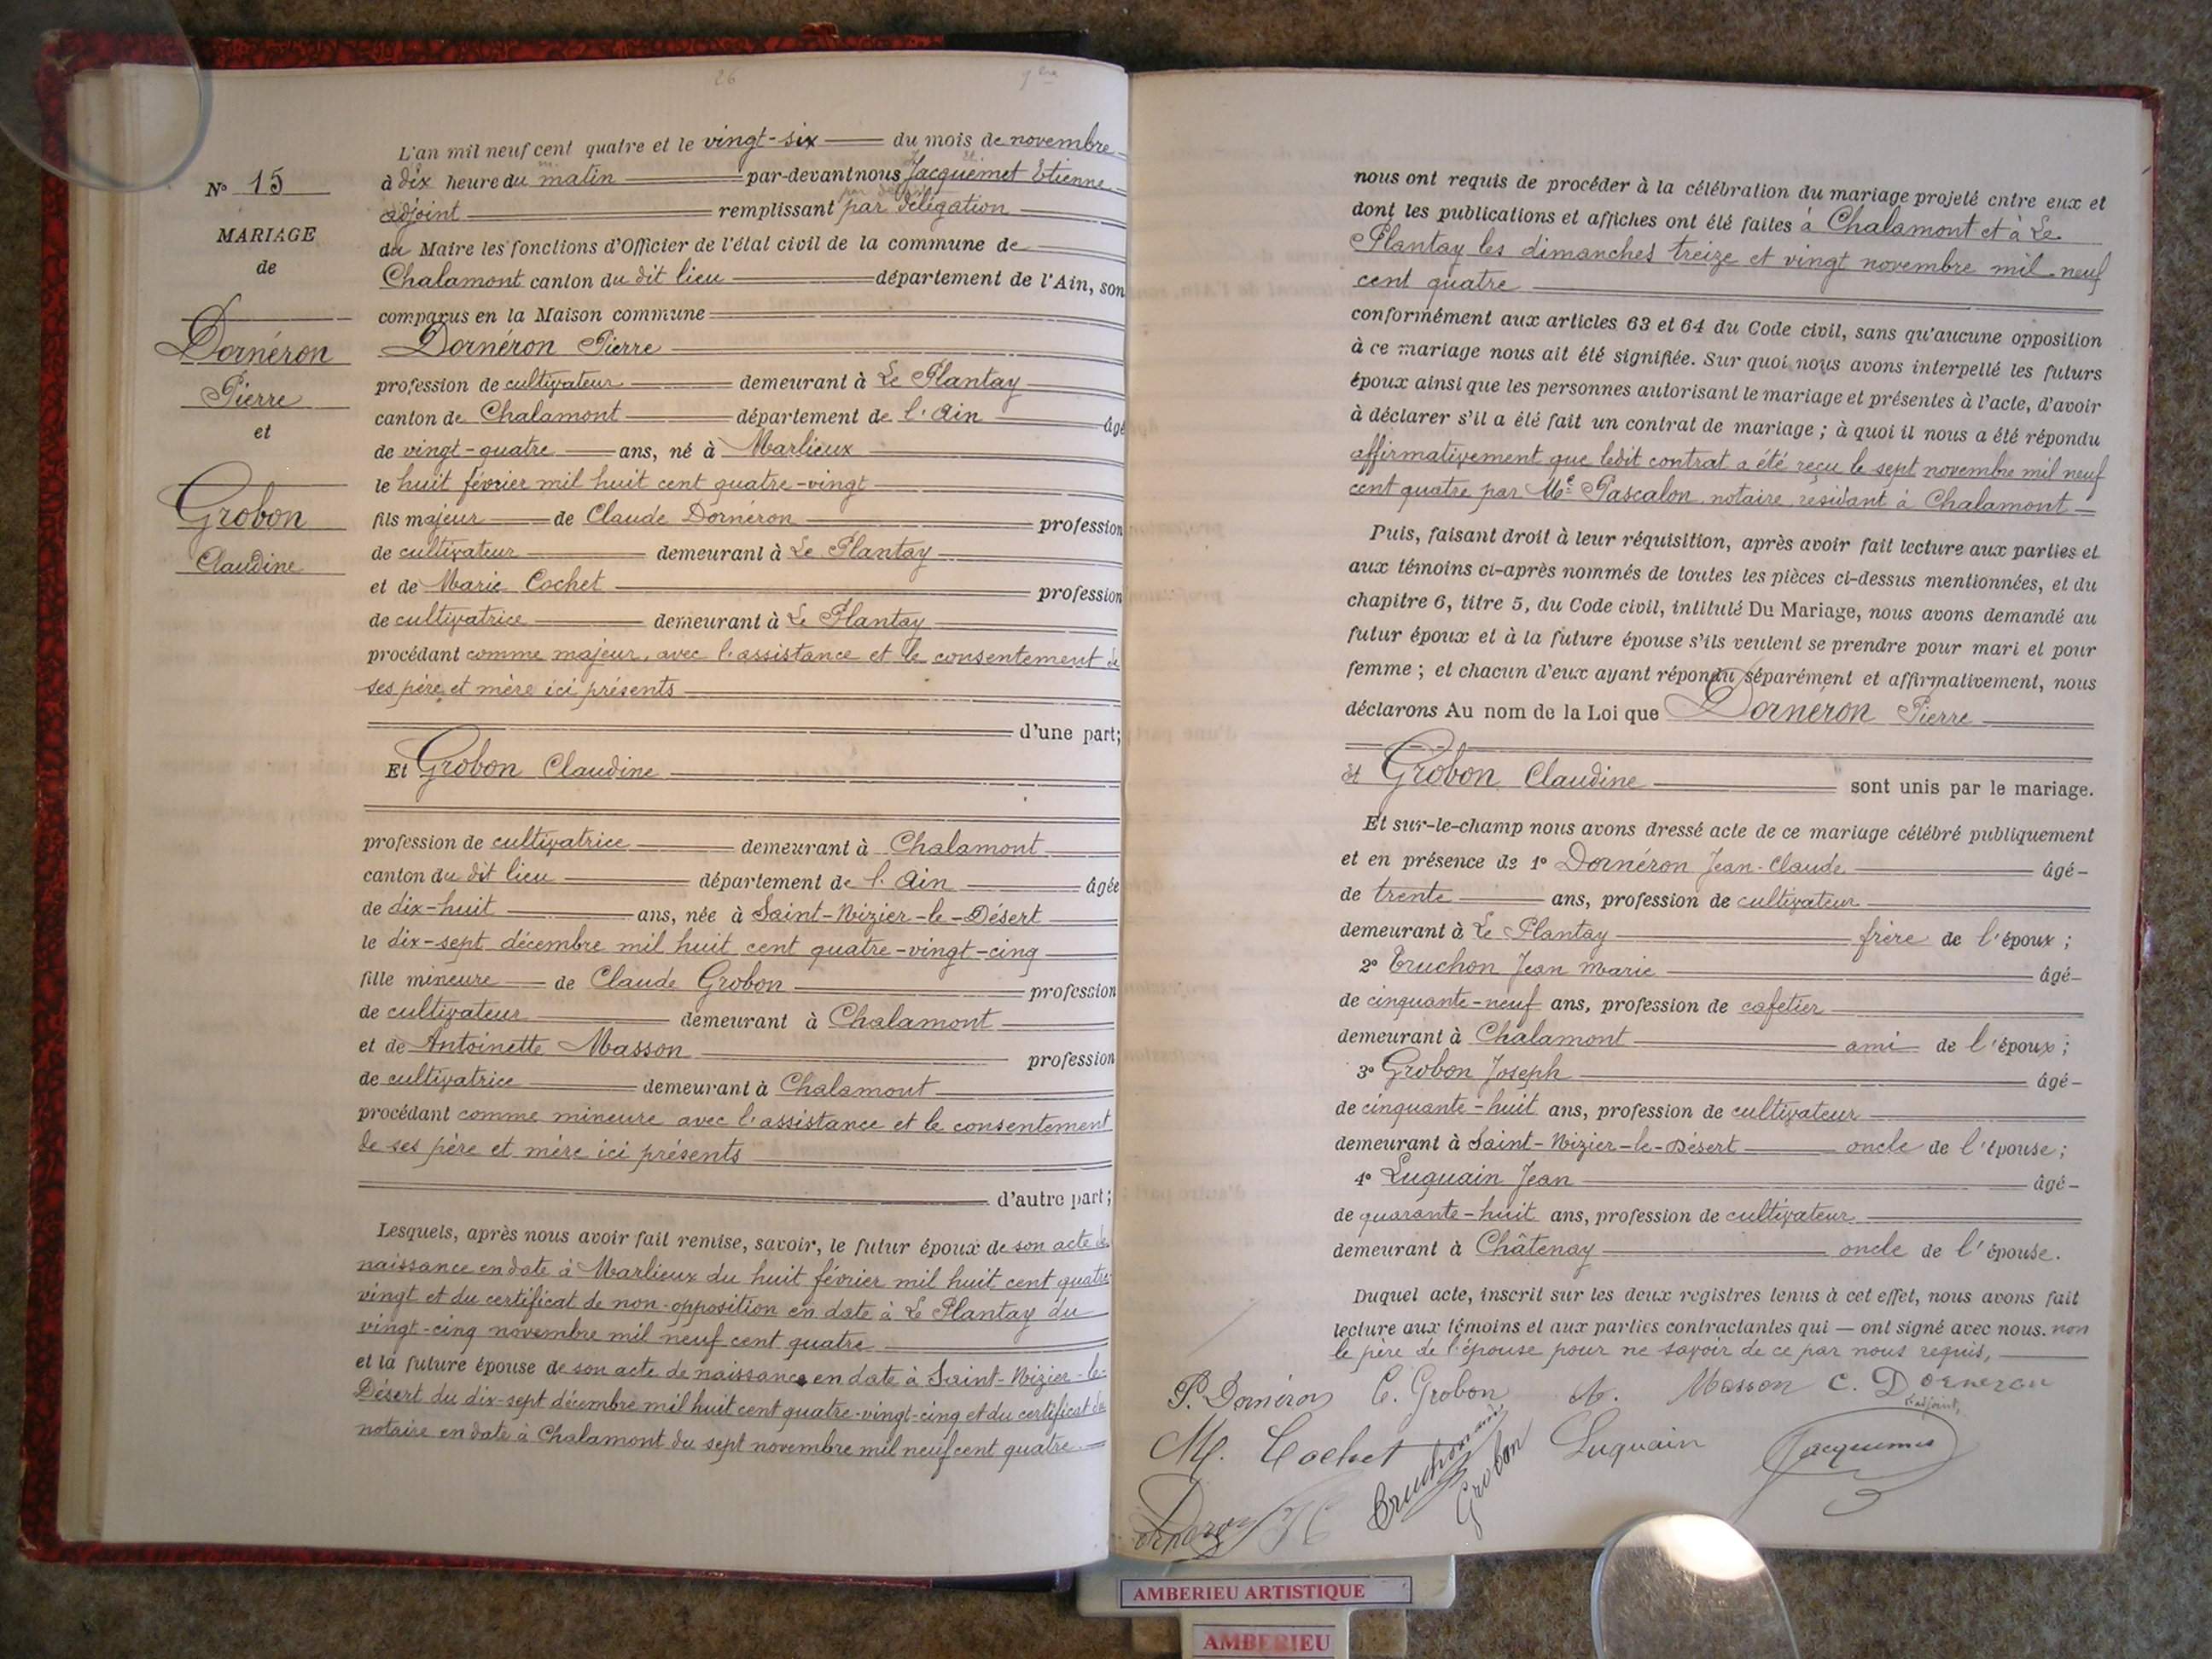 26
L'an mil neuf cent quatre et le vingt-six du mois de novembre
N° 15
à dix heure du matin par-devant nous Jacquemet Etienne
adjoint remplissant par délégation
MARIAGE
du Maire les fonctions d'Officier de l'état civil de la commune de
de
Chalamont canton du dit lieu département de l'Ain, son
comparus en la Maison commune
Dornéron
Pierre
et
Grobon
Claudine
Dornéron Pierre
profession de cultivateur demeurant à Le Plantay
canton de Chalamont département de l'Ain âgé
de vingt-quatre ans, né à Marlieux
le huit février mil huit cent quatre-vingt
fils majeur de Claude Dornéron profession
de cultivateur demeurant à Le Plantay
et de Marie Cochet profession
de cultivatrice demeurant à Le Plantay
procédant comme majeur, avec l'assistance et le consentement de
ses père et mère ici présents
d'une part;
Et Grobon Claudine
profession de cultivatrice demeurant à Chalamont
canton du dit lieu département de l'Ain âgée
de dix-huit ans, née à Saint-Nizier-le-Désert
le dix-sept décembre mil huit cent quatre-vingt-cinq
fille mineure de Claude Grobon profession
de cultivateur demeurant à Chalamont
et de Antoinette Masson profession
de cultivatrice demeurant à Chalamont
procédant comme mineure avec l'assistance et le consentement
de ses père et mère ici présents
d'autre part;
Lesquels, après nous avoir fait remise, savoir, le futur époux de son acte de
naissance en date à Marlieux du huit février mil huit cent quatre-
vingt et du certificat de non-opposition en date à Le Plantay du
vingt-cinq novembre mil neuf cent quatre
et la future épouse de son acte de naissance en date à Saint-Nizier-le-
Désert du dix-sept décembre mil huit cent quatre-vingt-cinq et du certificat du
notaire en date à Chalamont du sept novembre mil neuf cent quatre
nous ont requis de procéder à la célébration du mariage projeté entre eux et
dont les publications et affiches ont été faites à Chalamont et à Le
Plantay les dimanches treize et vingt novembre mil neuf
cent quatre
conformément aux articles 63 et 64 du Code civil, sans qu'aucune opposition
à ce mariage nous ait été signifiée. Sur quoi nous avons interpellé les futurs
époux ainsi que les personnes autorisant le mariage et présentes à l'acte, d'avoir
à déclarer s'il a été fait un contrat de mariage; à quoi il nous a été répondu
affirmativement que ledit contrat a été reçu le sept novembre mil neuf
cent quatre par Me Pascalon notaire, résidant à Chalamont
Puis, faisant droit à leur réquisition, après avoir fait lecture aux parties et
aux témoins ci-après nommés de toutes les pièces ci-dessus mentionnées, et du
chapitre 6, titre 5, du Code civil, intitulé Du Mariage, nous avons demandé au
futur époux et à la future épouse s'ils veulent se prendre pour mari et pour
femme; et chacun d'eux ayant répondu séparément et affirmativement, nous
déclarons Au nom de la Loi que Dornéron Pierre
et Grobon Claudine sont unis par le mariage.
Et sur-le-champ nous avons dressé acte de ce mariage célébré publiquement
et en présence de 1° Dornéron Jean-Claude âgé-
de trente ans, profession de cultivateur
demeurant à Le Plantay frère de l'époux;
2° Truchon Jean Marie âgé-
de cinquante-neuf ans, profession de cafetier
demeurant à Chalamont ami de l'époux;
3° Grobon Joseph âgé-
de cinquante-huit ans, profession de cultivateur
demeurant à Saint-Nizier-le-Désert oncle de l'épouse;
4° Luquain Jean âgé-
de quarante-huit ans, profession de cultivateur
demeurant à Châtenay oncle de l'épouse.
Duquel acte, inscrit sur les deux registres tenus à cet effet, nous avons fait
lecture aux témoins et aux parties contractantes qui — ont signé avec nous. non
le père de l'épouse pour ne savoir de ce par nous requis,
P. Dornéron C. Grobon A. Masson C. Dorneron
l'adjoint,
M. Cochet Truchon Grobon Luquain Jacquemet
Dorneron JC
AMBERIEU ARTISTIQUE
AMBERIEU